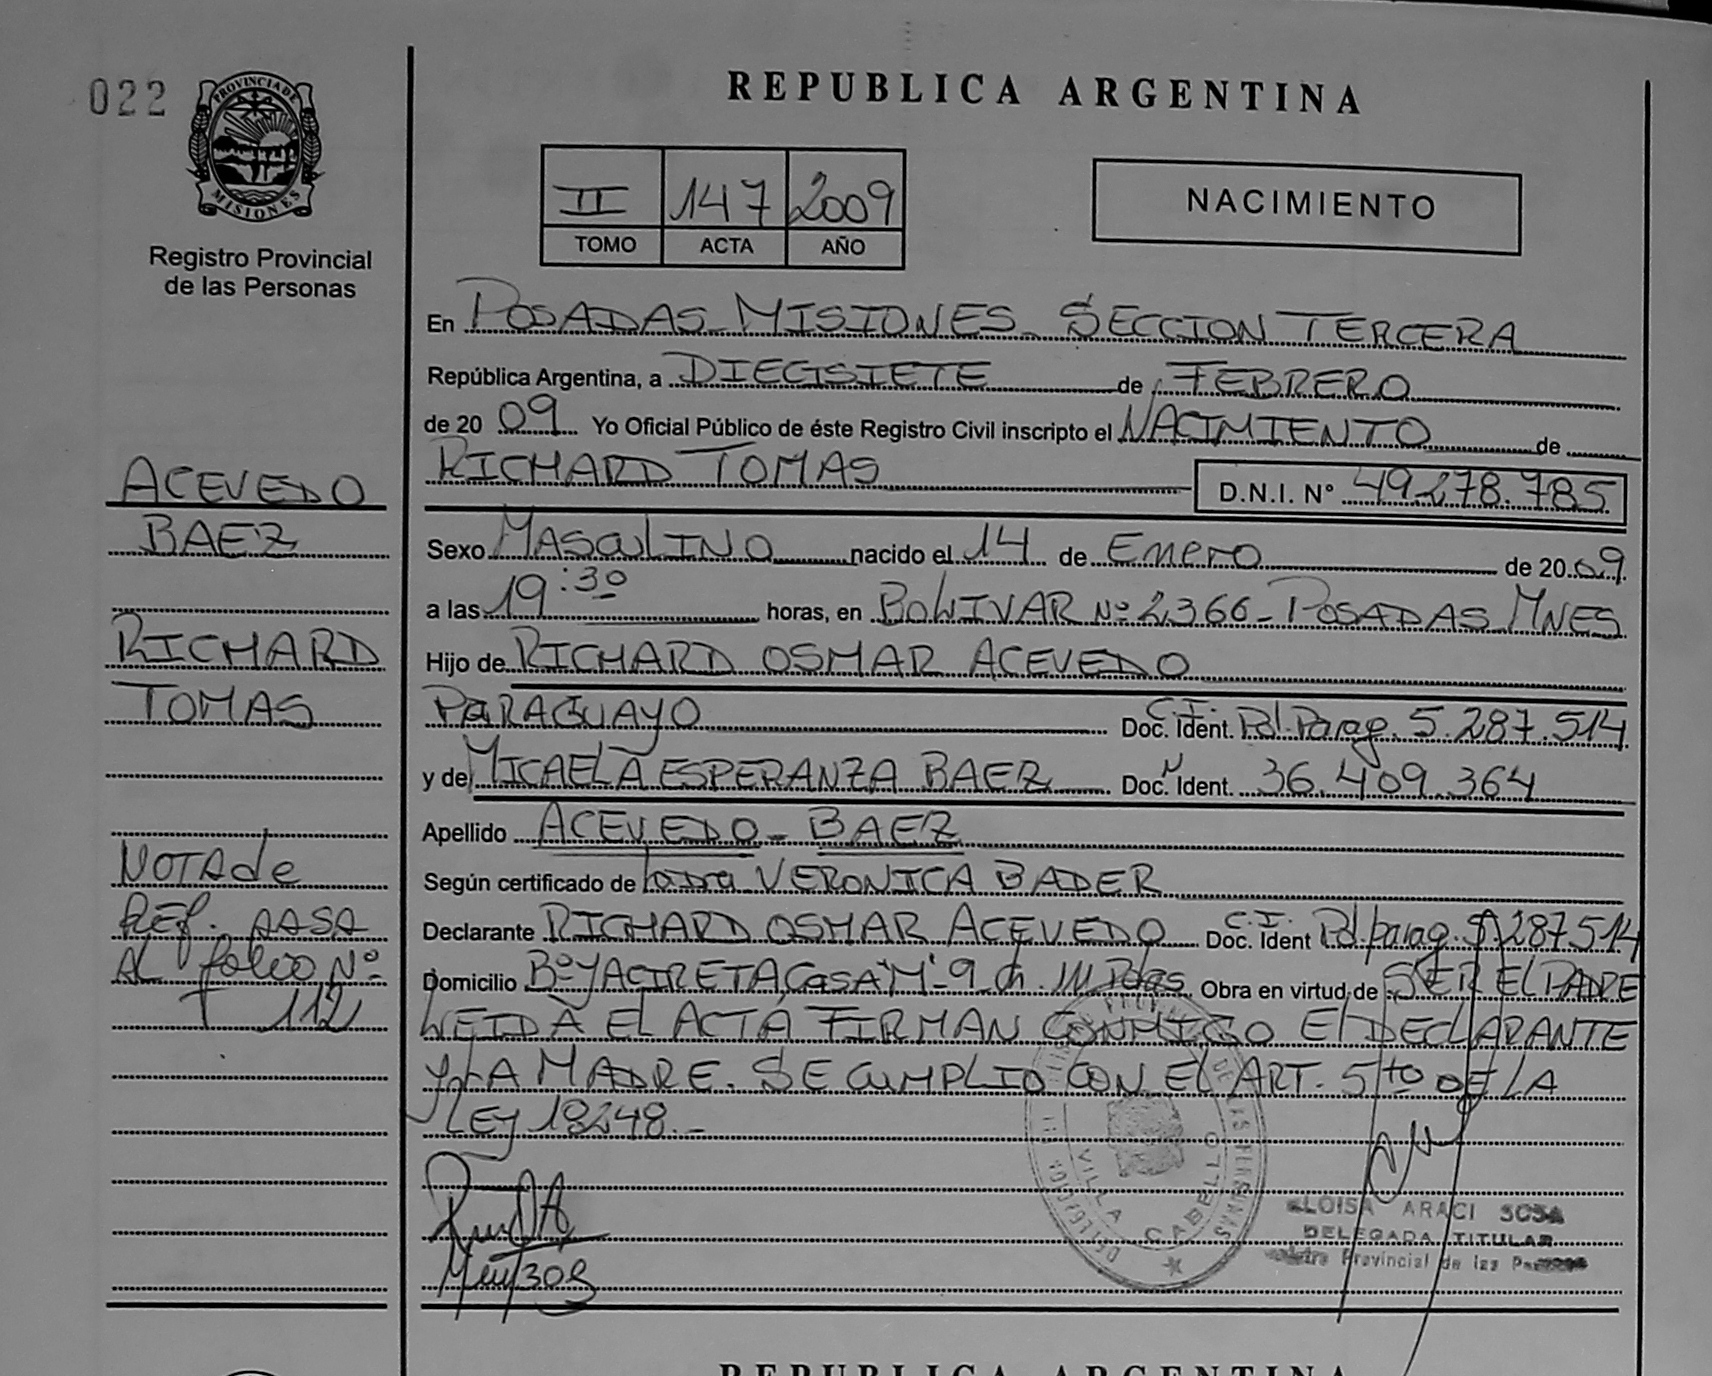 022
PROVINCIA DE
MISIONES
Registro Provincial
de las Personas
REPUBLICA ARGENTINA
II 147 2009
TOMO ACTA AÑO
NACIMIENTO
En POSADAS MISIONES SECCION TERCERA
República Argentina, a DIECISIETE de FEBRERO
de 20 09 Yo Oficial Público de éste Registro Civil inscripto el NACIMIENTO de
RICHARD TOMAS D.N.I. N° 49.278.785
Sexo Masculino nacido el 14 de Enero de 20 09
a las 19:30 horas, en BOLIVAR Nº 2366 - POSADAS MNES
Hijo de RICHARD OSMAR ACEVEDO
PARAGUAYO Doc. Ident. C.I. Pol. Parag. 5.287.514
y de MICAELA ESPERANZA BAEZ Doc. Ident. 36.409.364
Apellido ACEVEDO - BAEZ
Según certificado de VERONICA BADER
Declarante RICHARD OSMAR ACEVEDO Doc. Ident C.I. Pol. parag. 5.287.514
Domicilio Bº YACIRETA Casa "M" - 9 ch. Pdas. Obra en virtud de SER EL PADRE
LEIDA EL ACTA FIRMAN CONMIGO El DECLARANTE
y LA MADRE. SE CUMPLIO CON El ART. 5to DE LA
LEY 18248.-
ACEVEDO
BAEZ
RICHARD
TOMAS
NOTA de
REF. PASA
AL folio Nº
112
VILLA CABELLO
ELOISA ARACI SOSA
DELEGADA TITULAR
Provincial de las Personas
REPUBLICA ARGENTINA